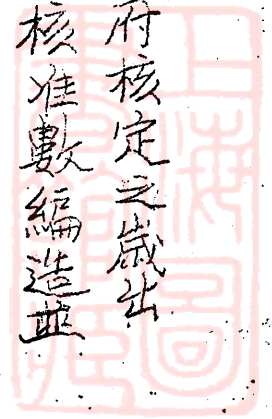 府核定之歲出
核准數編造並
上海圖